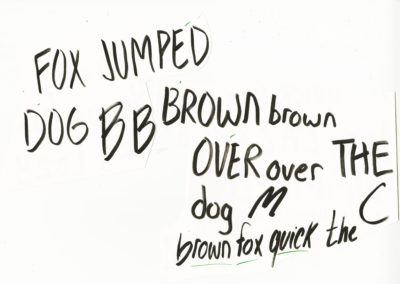 FOX JUMPED
DOG B B BROWN brown
OVER over THE
dog M C
brown fox quick the